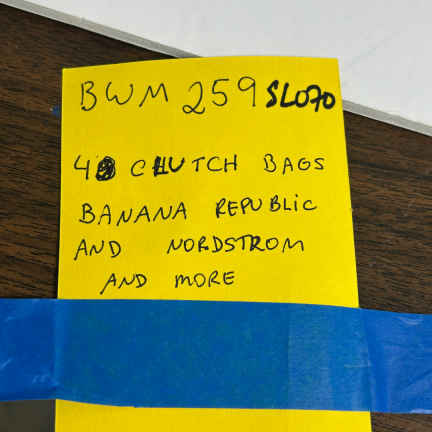 BWM 259 SLO70
4 CLUTCH BAGS
BANANA REPUBLIC
AND NORDSTROM
AND MORE